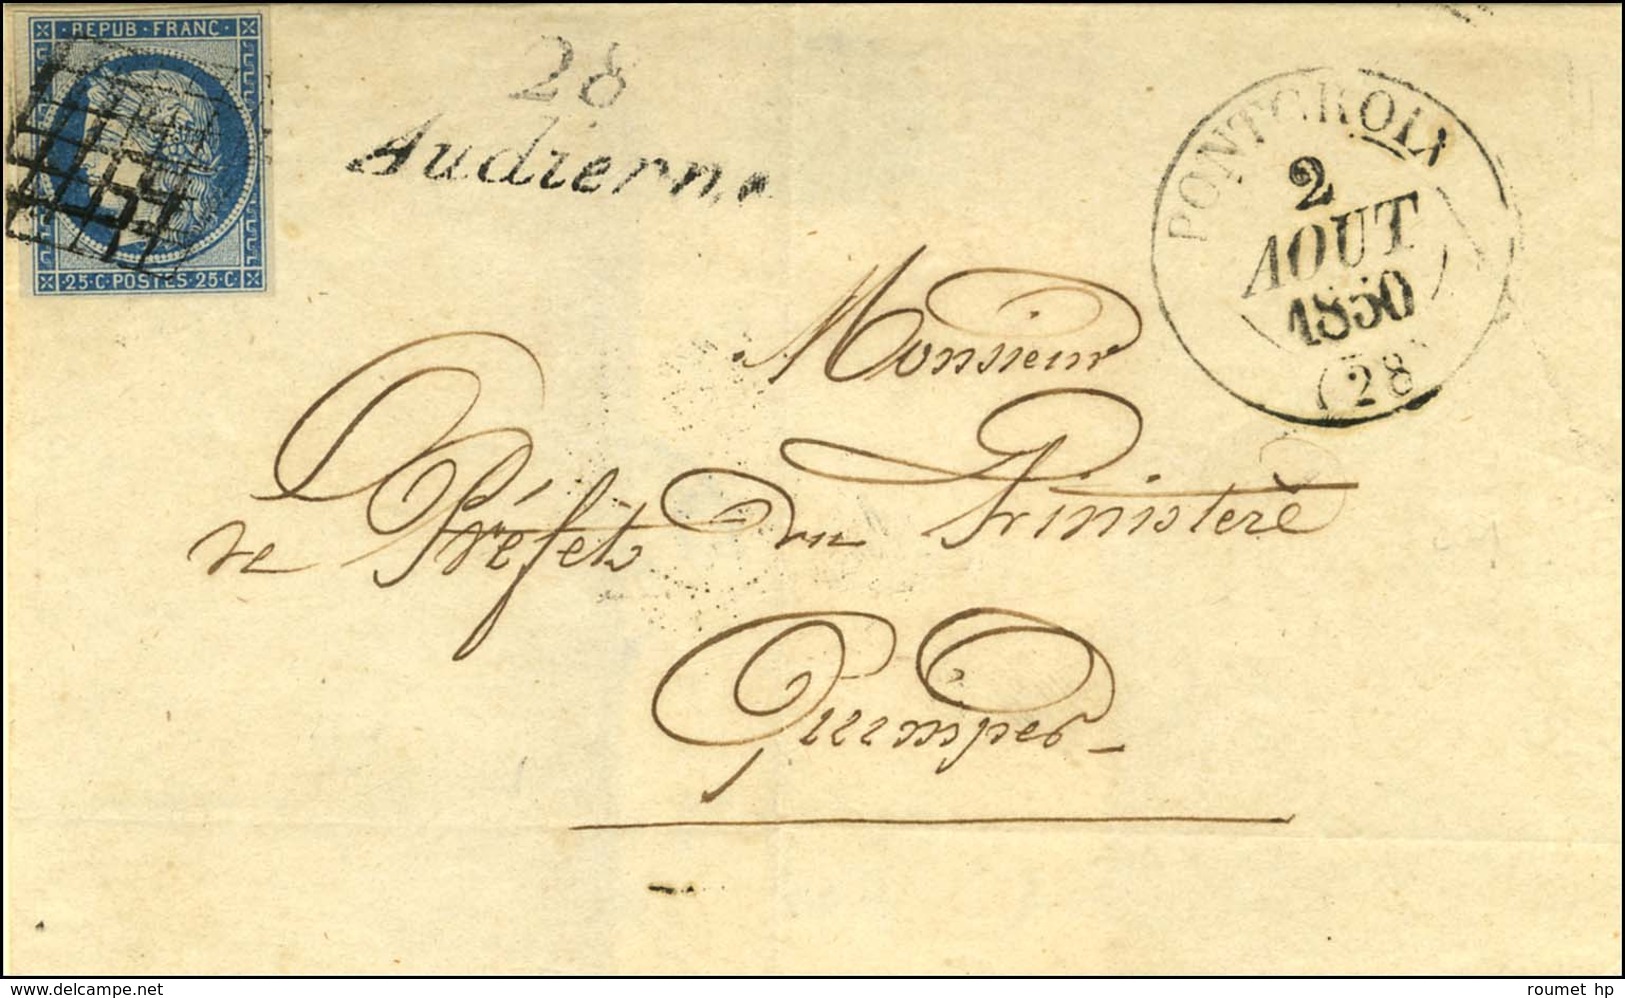 REPUB·FRANC·
25·C·POSTES·25·C·
28
Audierne
PONTCROIX
2
AOUT
1850
(28)
Monsieur
Le Préfet du Finistère
Quimper
www.delcampe.net
roumet hp